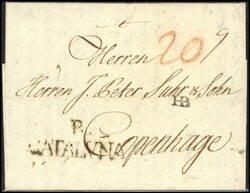 Herren 20
Herren J. Peter Suhr & Sohn
HB
P.
CATALVNA
Copenhage